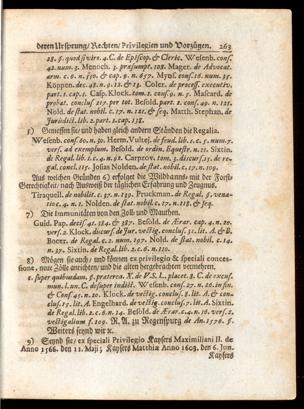 deren Ursprung/ Rechten/ Privilegien und Vorzügen. 263
28. §. quod si vir. 4. C. de Episcop. & Cleric. Wesenb. conf.
42. num. 3. Menoch. 3. præsumpt. 108. Mager. de Advocat.
arm. c. 6. n. 150. & cap. 9. n. 857. Myns. conf. 16. num. 35.
Köppen. dec. 48. n. 9. 12. & 13. Coler. de process. executiv.
part. 1. cap. 1. Casp. Klock. tom. 1. conf. 9. n. 5. Mascard. de
probat. conclus. 217. per tot. Besold. part. 2. conf. 49. n. 121.
Nold. de stat. nobil. c. 17. n. 121. & seq. Matth. Stephan. de
Jurisdict. lib. 2. part. 2. cap. 132.
5) Geniessen sie/ und haben gleich andern Ständen die Regalia.
Wesenb. conf. 60. n. 30. Herm. Vultej. de feud. lib. 1. c. 5. num. 7.
vers. ad exemplum. Besold. de ordin. Equestr. n. 11. Sixtin.
de Regal. lib. 1. c. 4. n. 98. Carpzov. tom. 3. discurs. 15. de re-
gal. concl. 113. Josias Nolden. de stat. nobil. c. 17. n. 109.
Aus welchen Gründen 6) erfolget die Wildbanns mit der Forst-
Gerechtigkeit/ nach Ausweiß der täglichen Erfahrung und Zeugnus.
Tiraquell. de nobilit. c. 37. n. 139. Pruckman. de Regal. §. vena-
tio c. 4. n. 1. Nolden. de stat. nobil. c. 17. n. 118. & seq.
7) Die Immunitäten von den Zoll und Mauthen.
Guid. Pap. decis. 41. 384. & 387. Besold. de Ærar. cap. 4. n. 20.
vers. 2. Klock. discurs. de Jur. vectig. conclus. 31. lit. A. & B.
Bocer. de Regal. c. 2. num. 197. Nold. de stat. nobil. c. 14.
n. 37. Sixtin. de Regal. lib. 2. c. 6. n. 110.
8) Mögen sie auch/ und können ex privilegio & speciali conces-
sione, neue Zölle anrichten/ und die alten hergebrachten vermehren.
c. super quibusdam. §. præterea. X. de V. S. L. placet. 8. C. de excus.
mun. l. un. C. de super indict. Wesenb. conf. 27. n. 26. in fin.
& Conf. 45. n. 20. Klock. de vectig. conclus. 8. lit. A. & con-
clus. 15. lit. A. Engelhard. de vectig. conclus. 7. lit. A. Sixtin.
de Regal. lib. 2. c. 6. n. 14. Besold. de Ærar. c. 4. n. 16. vers. 2.
vectigalium f. 109. R. A. zu Regenspurg de An. 1576. §.
Weiters seynd wir &c.
9) Seynd sie/ ex speciali Privilegio Kaysers Maximiliani II. de
Anno 1566. den 11. Maji; Kaysers Matthiæ Anno 1609. den 6. Jun.
Kaysers